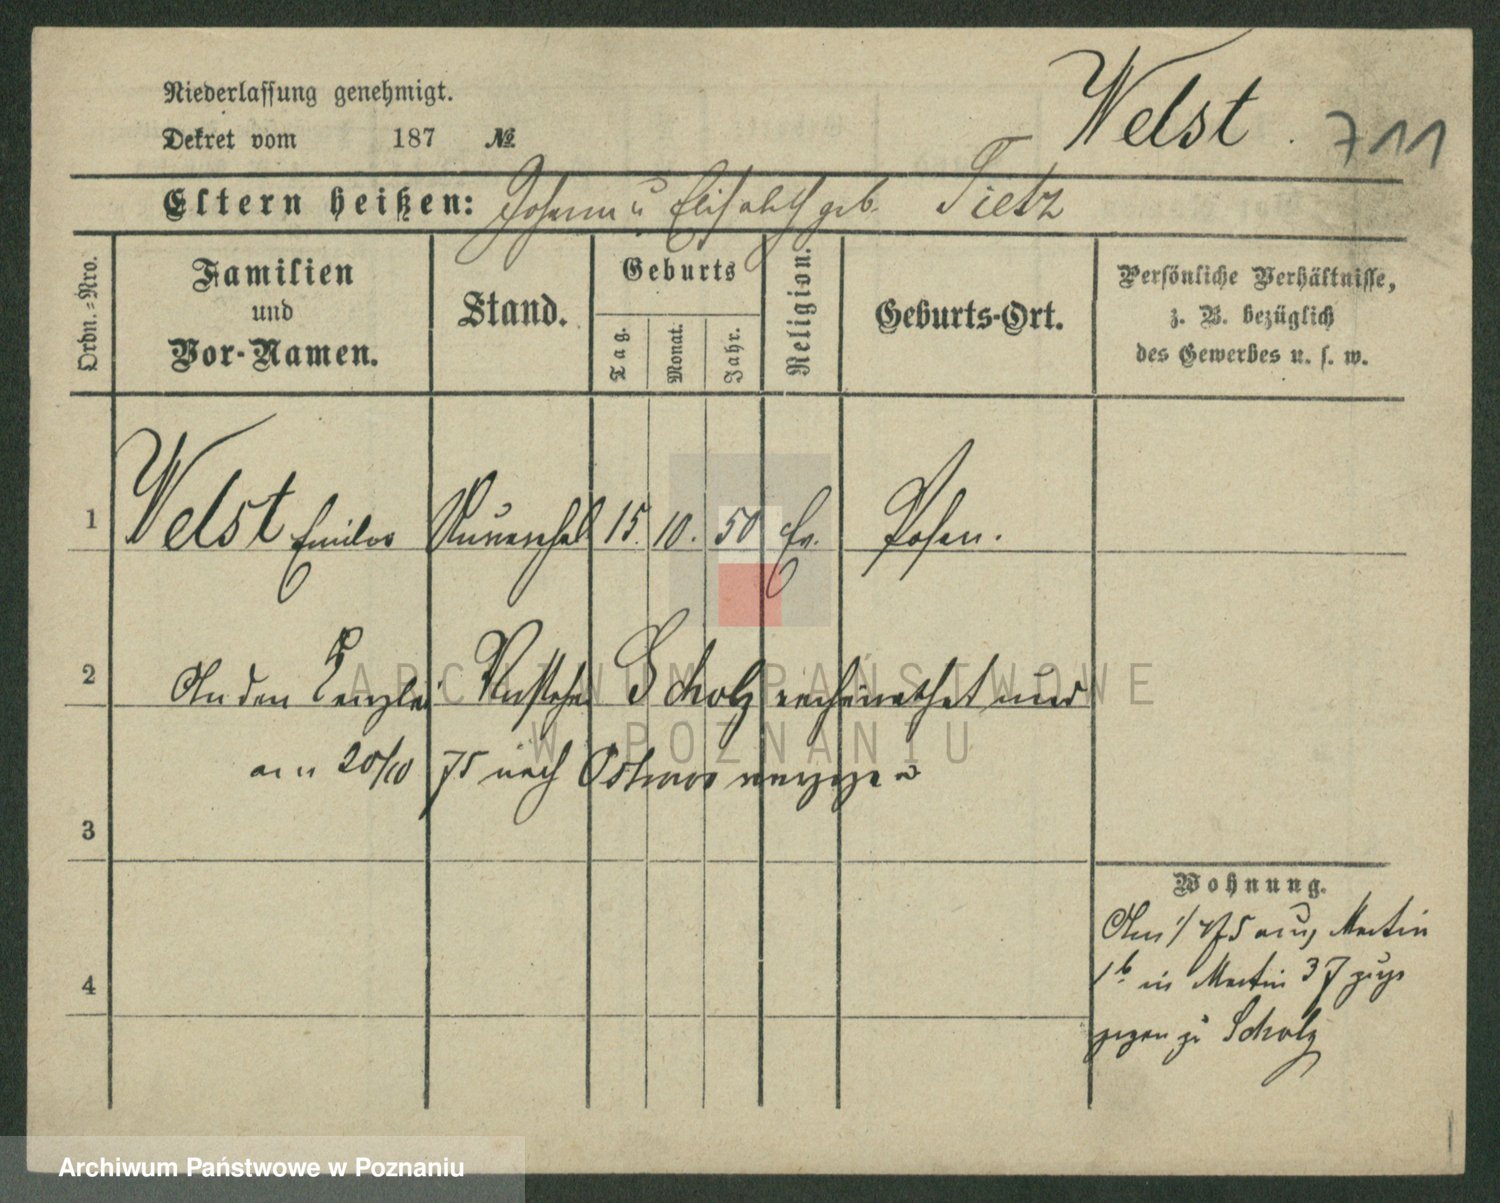 Niederlassung genehmigt.
Welst. 711
Dekret vom 187 №
Eltern heißen: Johann u Elisabeth geb. Tietz
Ordn.=Nro.
Familien
und
Vor-Namen.
Stand.
Geburts
Tag.
Monat.
Jahr.
Religion.
Geburts-Ort.
Persönliche Verhältnisse,
z. B. bezüglich
des Gewerbes u. s. w.
1 Welst 15. 10. 50 Ev. Posen.
2 An den Scholz verheirathet und
am 20/10 75 nach Ostrowo verzogen
3
Wohnung.
Am 1/ 75 aus Martin
4
1b in Martin 37
gegen zu Scholz
ARCHIWUM PAŃSTWOWE
W POZNANIU
Archiwum Państwowe w Poznaniu